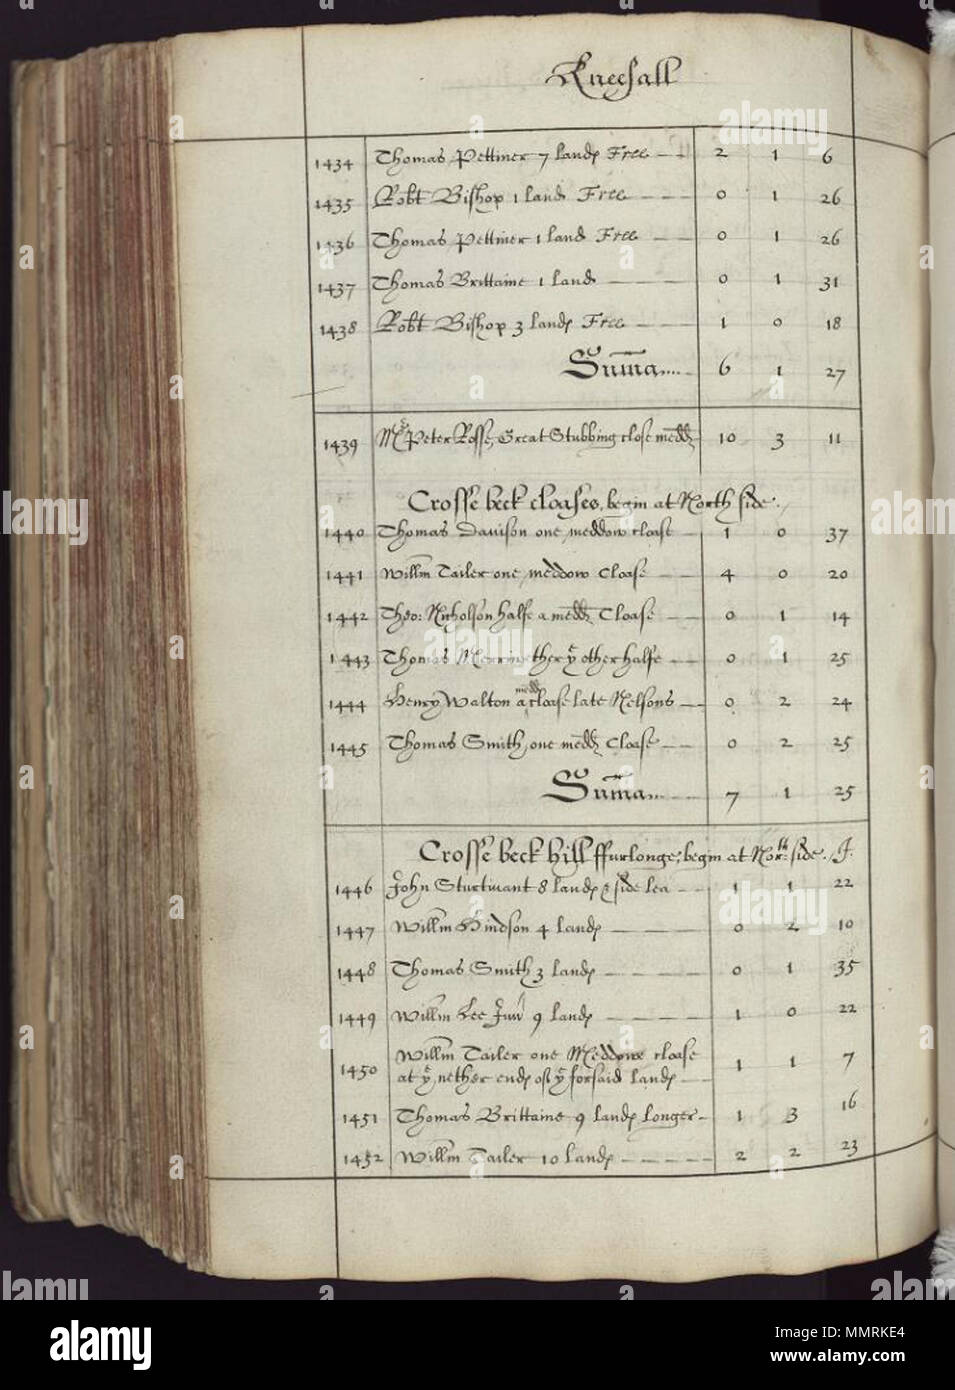 Kneesall
1434 Thomas Pettiner 7 lands Free 2 1 6
1435 Robt Bishop 1 land Free 0 1 26
1436 Thomas Pettiner 1 land Free 0 1 26
1437 Thomas Brittaine 1 land 0 1 31
1438 Robt Bishop 3 lands Free 1 0 18
Summa 6 1 27
1439 Mr Peter Rosse, Great Stubbing close medd 10 3 11
Crosse beck cloases, begin at North side.
1440 Thomas Davison one meddow cloase 1 0 37
1441 Willm Tailer one meddow Cloase 4 0 20
1442 Theo: Nicholson halfe a medd Cloase 0 1 14
1443 Thomas Merriwether ye other halfe 0 1 25
1444 Henry Walton a medd cloase late Nelsons 0 2 24
1445 Thomas Smith, one medd Cloase 0 2 25
Summa 7 1 25
Crosse beck hill ffurlonge, begin at North: side. F:
1446 John Sturtivant 8 lands & side lea 1 1 22
1447 Willm Hindson 4 lands 0 2 10
1448 Thomas Smith 3 lands 0 1 35
1449 Willm Lee Junr 9 lands 1 0 22
1450 Willm Tailer one Meddowe cloase 1 1 7
at ye nether ends of ye forsaid lands
1451 Thomas Brittaine 9 lands longer 1 3 16
1452 Willm Tailer 10 lands 2 2 23
alamy
alamy
Image ID: MMRKE4
www.alamy.com